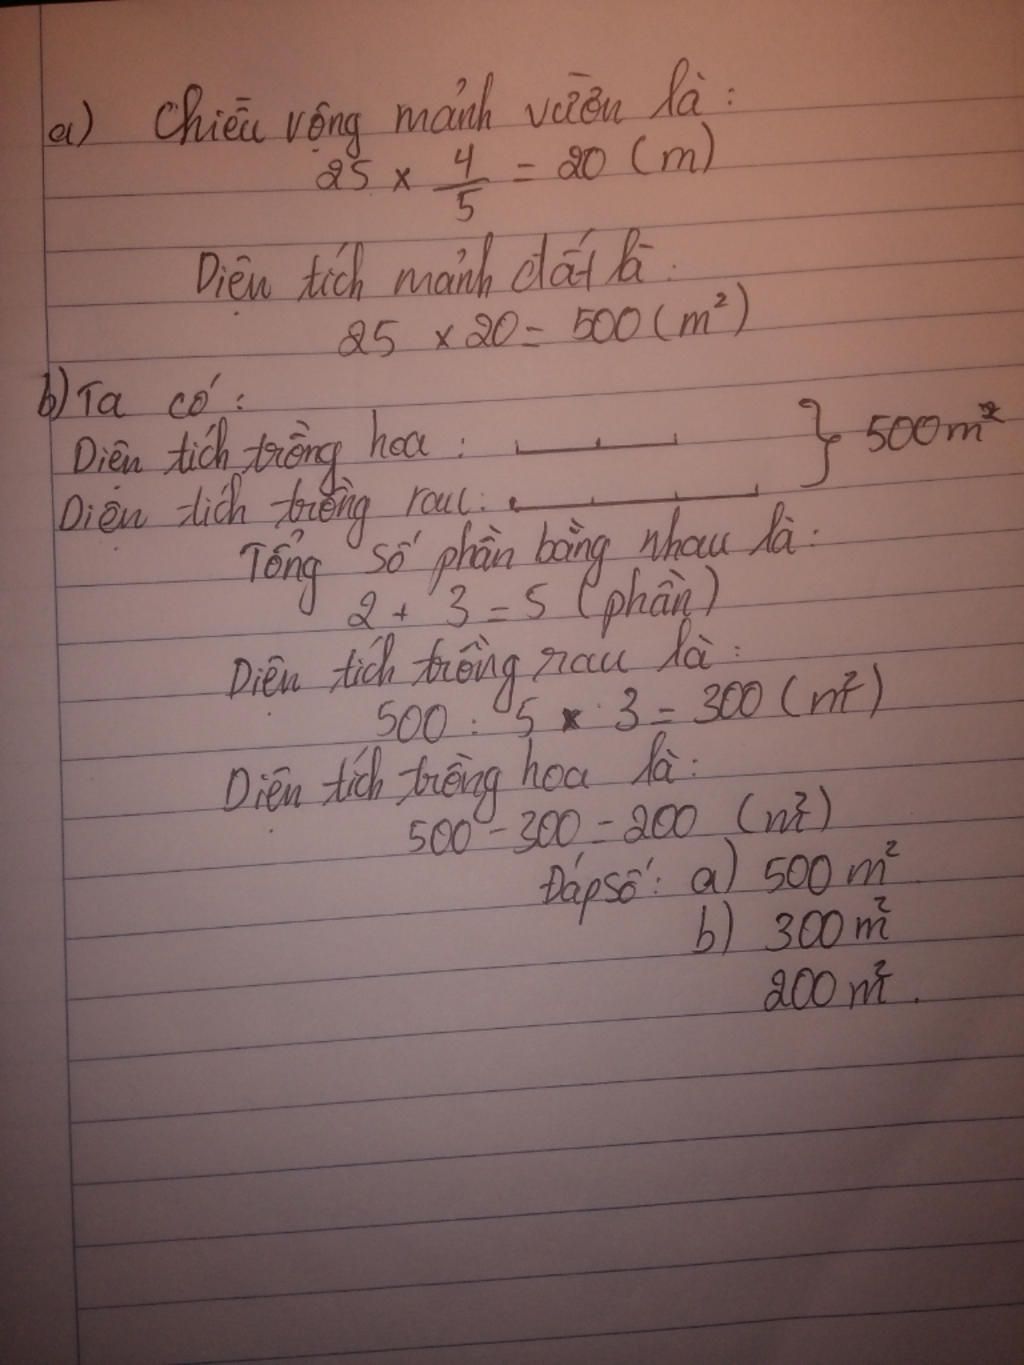 a) Chiều rộng mảnh vườn là:
25 × 4/5 = 20 (m)
Diện tích mảnh đất là:
25 × 20 = 500 (m²)
b) Ta có:
Diện tích trồng hoa : } 500 m²
Diện tích trồng rau:
Tổng số phần bằng nhau là:
2 + 3 = 5 (phần)
Diện tích trồng rau là:
500 : 5 × 3 = 300 (m²)
Diện tích trồng hoa là:
500 - 300 = 200 (m²)
Đáp số: a) 500 m²
b) 300 m²
200 m².